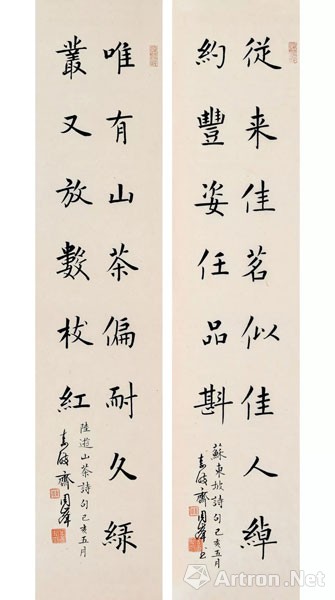 従来佳茗似佳人綽
約豐姿任品斟
蘇東坡詩句己亥五月
齋周峰
唯有山茶偏耐久緑
叢又放數枝紅
陸遊山茶詩句己亥五月
齋周峰
Artron.Net